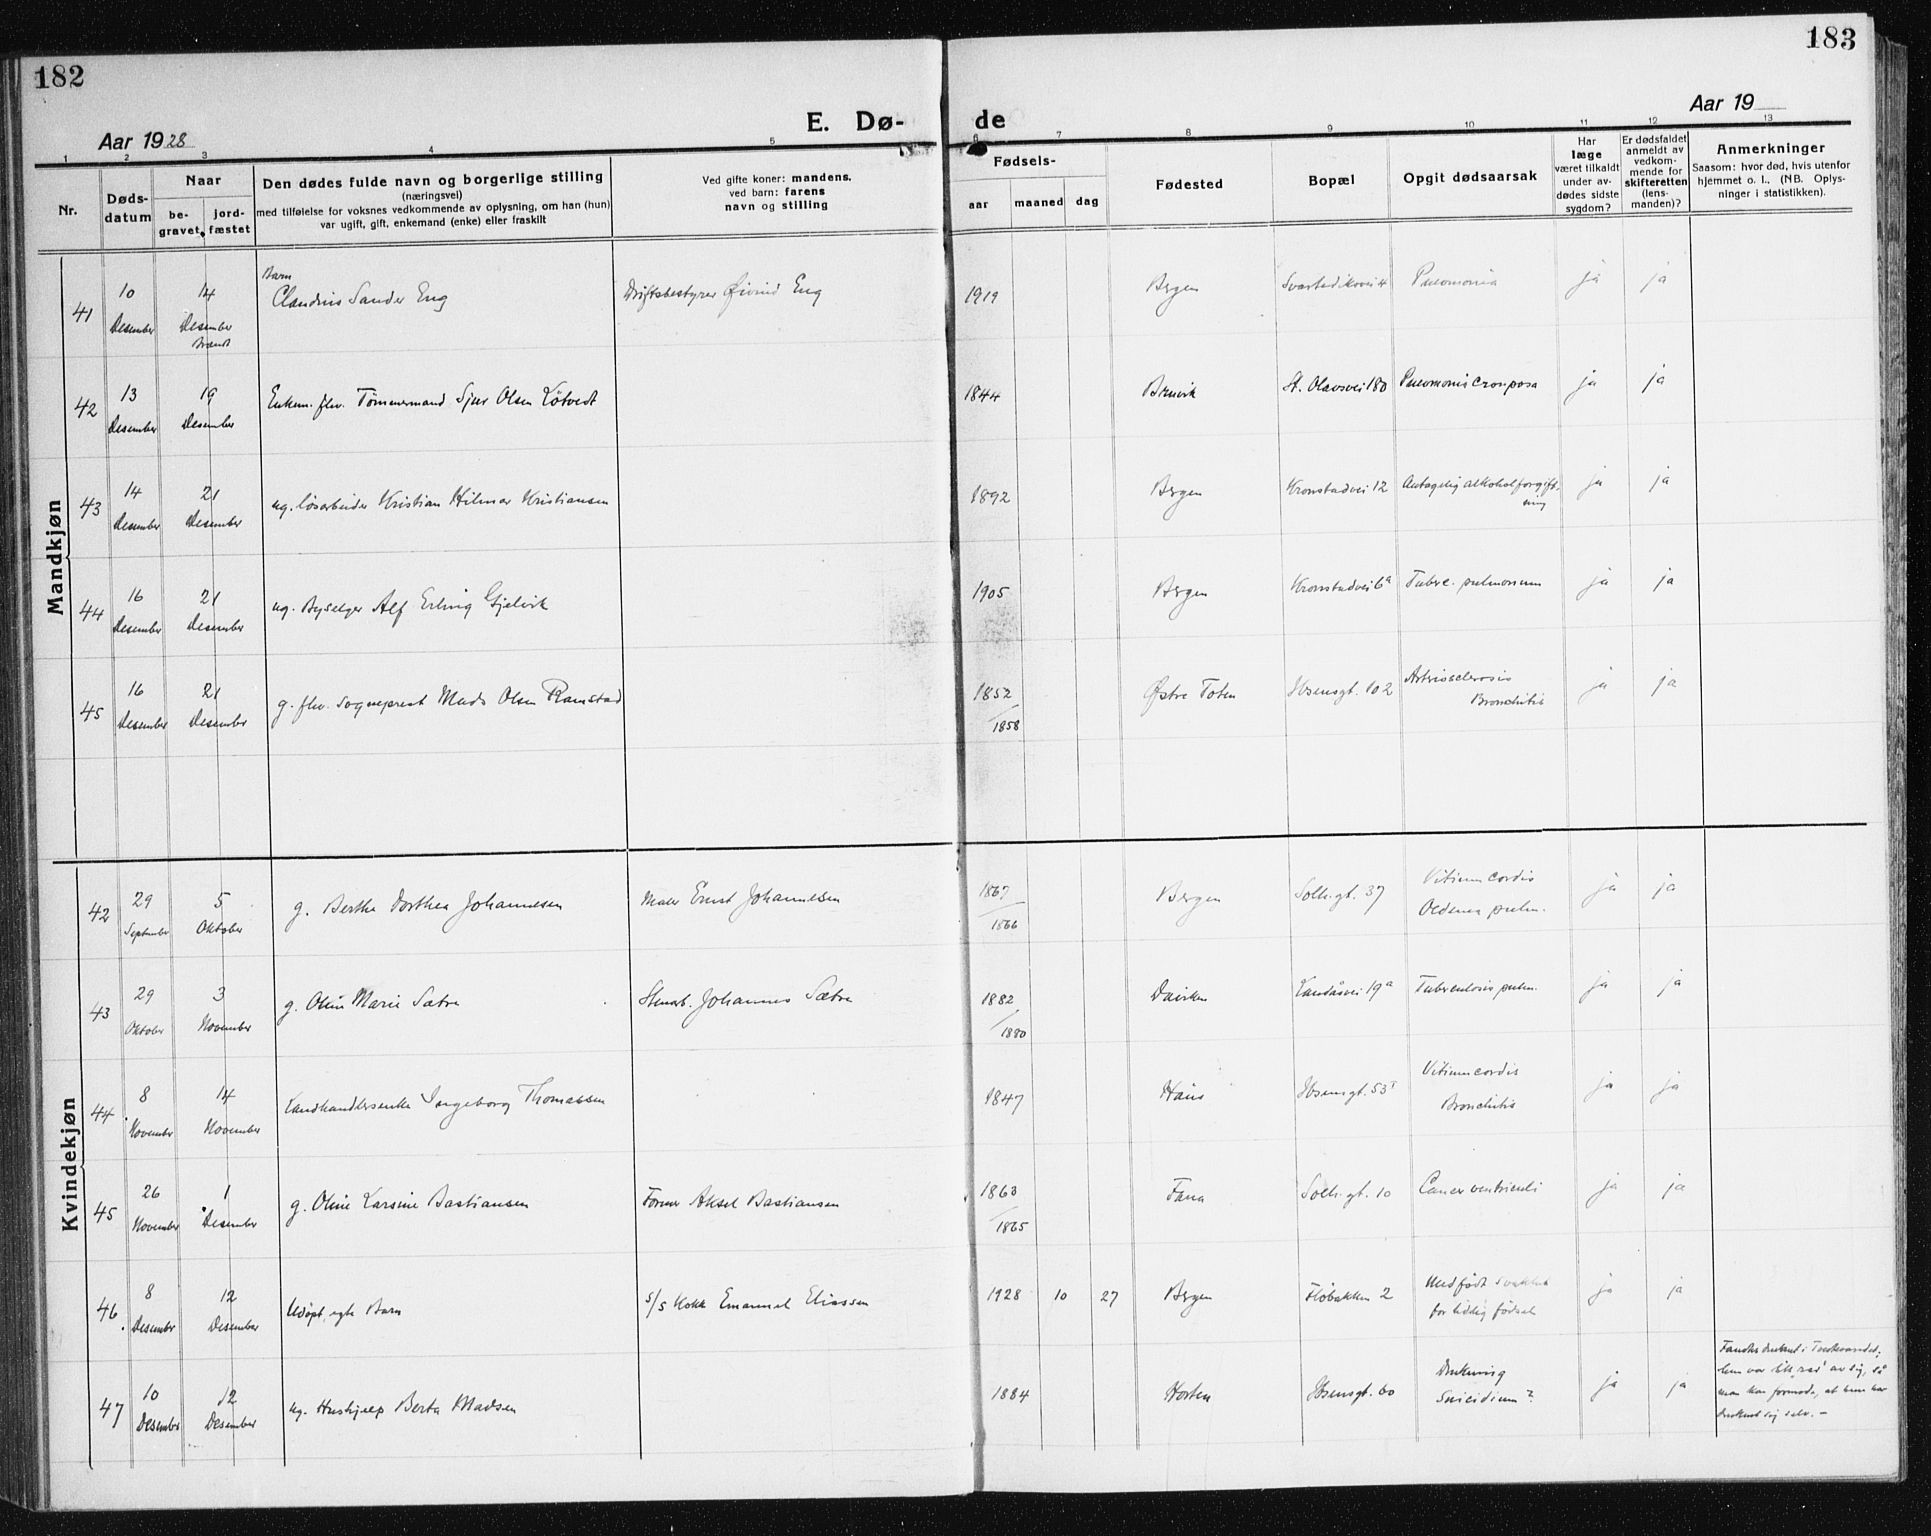 182
183
Aar 1928
E. Dø-
de
Aar 19
1 2 3 4 5 6 7 8 9 10 11 12 13
Nr.
Døds-
datum
Naar
be-
gravet
jord-
fæstet
Den dødes fulde navn og borgerlige stilling
(næringsvei)
med tilføielse for voksnes vedkommende av oplysning, om han (hun)
var ugift, gift, enkemand (enke) eller fraskilt
Ved gifte koner: mandens.
ved barn: farens
navn og stilling
Fødsels-
aar
maaned
dag
Fødested
Bopæl
Opgit dødsaarsak
Har
læge
været tilkaldt
under av-
dødes sidste
sygdom?
Er dødsfaldet
anmeldt av
vedkom-
mende for
skifteretten
(lens-
manden)?
Anmerkninger
Saasom: hvor død, hvis utenfor
hjemmet o. l., (NB. Oplys-
ninger i statistikken).
Mandkjøn
41 10 Desember 14 Desember
Brændt
Barn
Claudius Sander Eng Driftsbestyrer Øivind Eng 1919 Bergen Svartediksvei 4 Pneumonia ja ja
42 13 Desember 19 Desember Enkem. fhv. Tømmermand Sjur Olsen Løtvedt 1844 Bruvik St. Olavsvei 180 Pneumonia crouposa ja ja
43 14 Desember 21 Desember ug. løsarbeider Kristian Hilmar Kristiansen 1892 Bergen Kronstadvei 12 Antagelig alkoholforgift-
ning ja ja
44 16 Desember 21 Desember ug. Byselger Alf Erling Gjelvik 1905 Bergen Kronstadvei 6a Tuberc. pulmonum ja ja
45 16 Desember 21 Desember g. fhv. Sogneprest Mads Olsen Ramstad 1852
/1858 Østre Toten Ibsensgt. 102 Artriosclerosis
Bronchitis ja ja
Kvindekjøn
42 29 September 5 Oktober g. Berthe Dorthea Johannesen Maler Ernst Johannesen 1867
/1866 Bergen Solh.gt. 37 Vitium cordis
Oedema pulm. ja ja
43 29 Oktober 3 November g. Oline Marie Sætre Stenarb. Johannes Sætre 1882
/1880 Daviken Landåsvei 19a Tuberculosis pulm. ja ja
44 8 November 14 November Landhandlerenke Ingeborg Thomassen 1847 Haus Ibsensgt. 53I Vitium cordis
Bronchitis ja ja
45 26 November 1 Desember g. Oline Larsine Bastiansen Former Aksel Bastiansen 1863
/1865 Fana Solh.gt. 10 Cancer ventriculi ja ja
46 8 Desember 12 Desember Udøpt, egte Barn s/s Kokk Emanuel Eliassen 1928 10 27 Bergen Fløbakken 2 Medfødt svakhet
for tidlig fødsel ja ja
47 10 Desember 12 Desember ug. Hushjelp Berta Madsen 1884 Horten Ibsensgt. 60 Drukning
Suicidium? ja ja
Fandtes druknet i Tveitevandet;
hun var litt rar av sig, så
man kan formode, at hun har
druknet sig selv. –